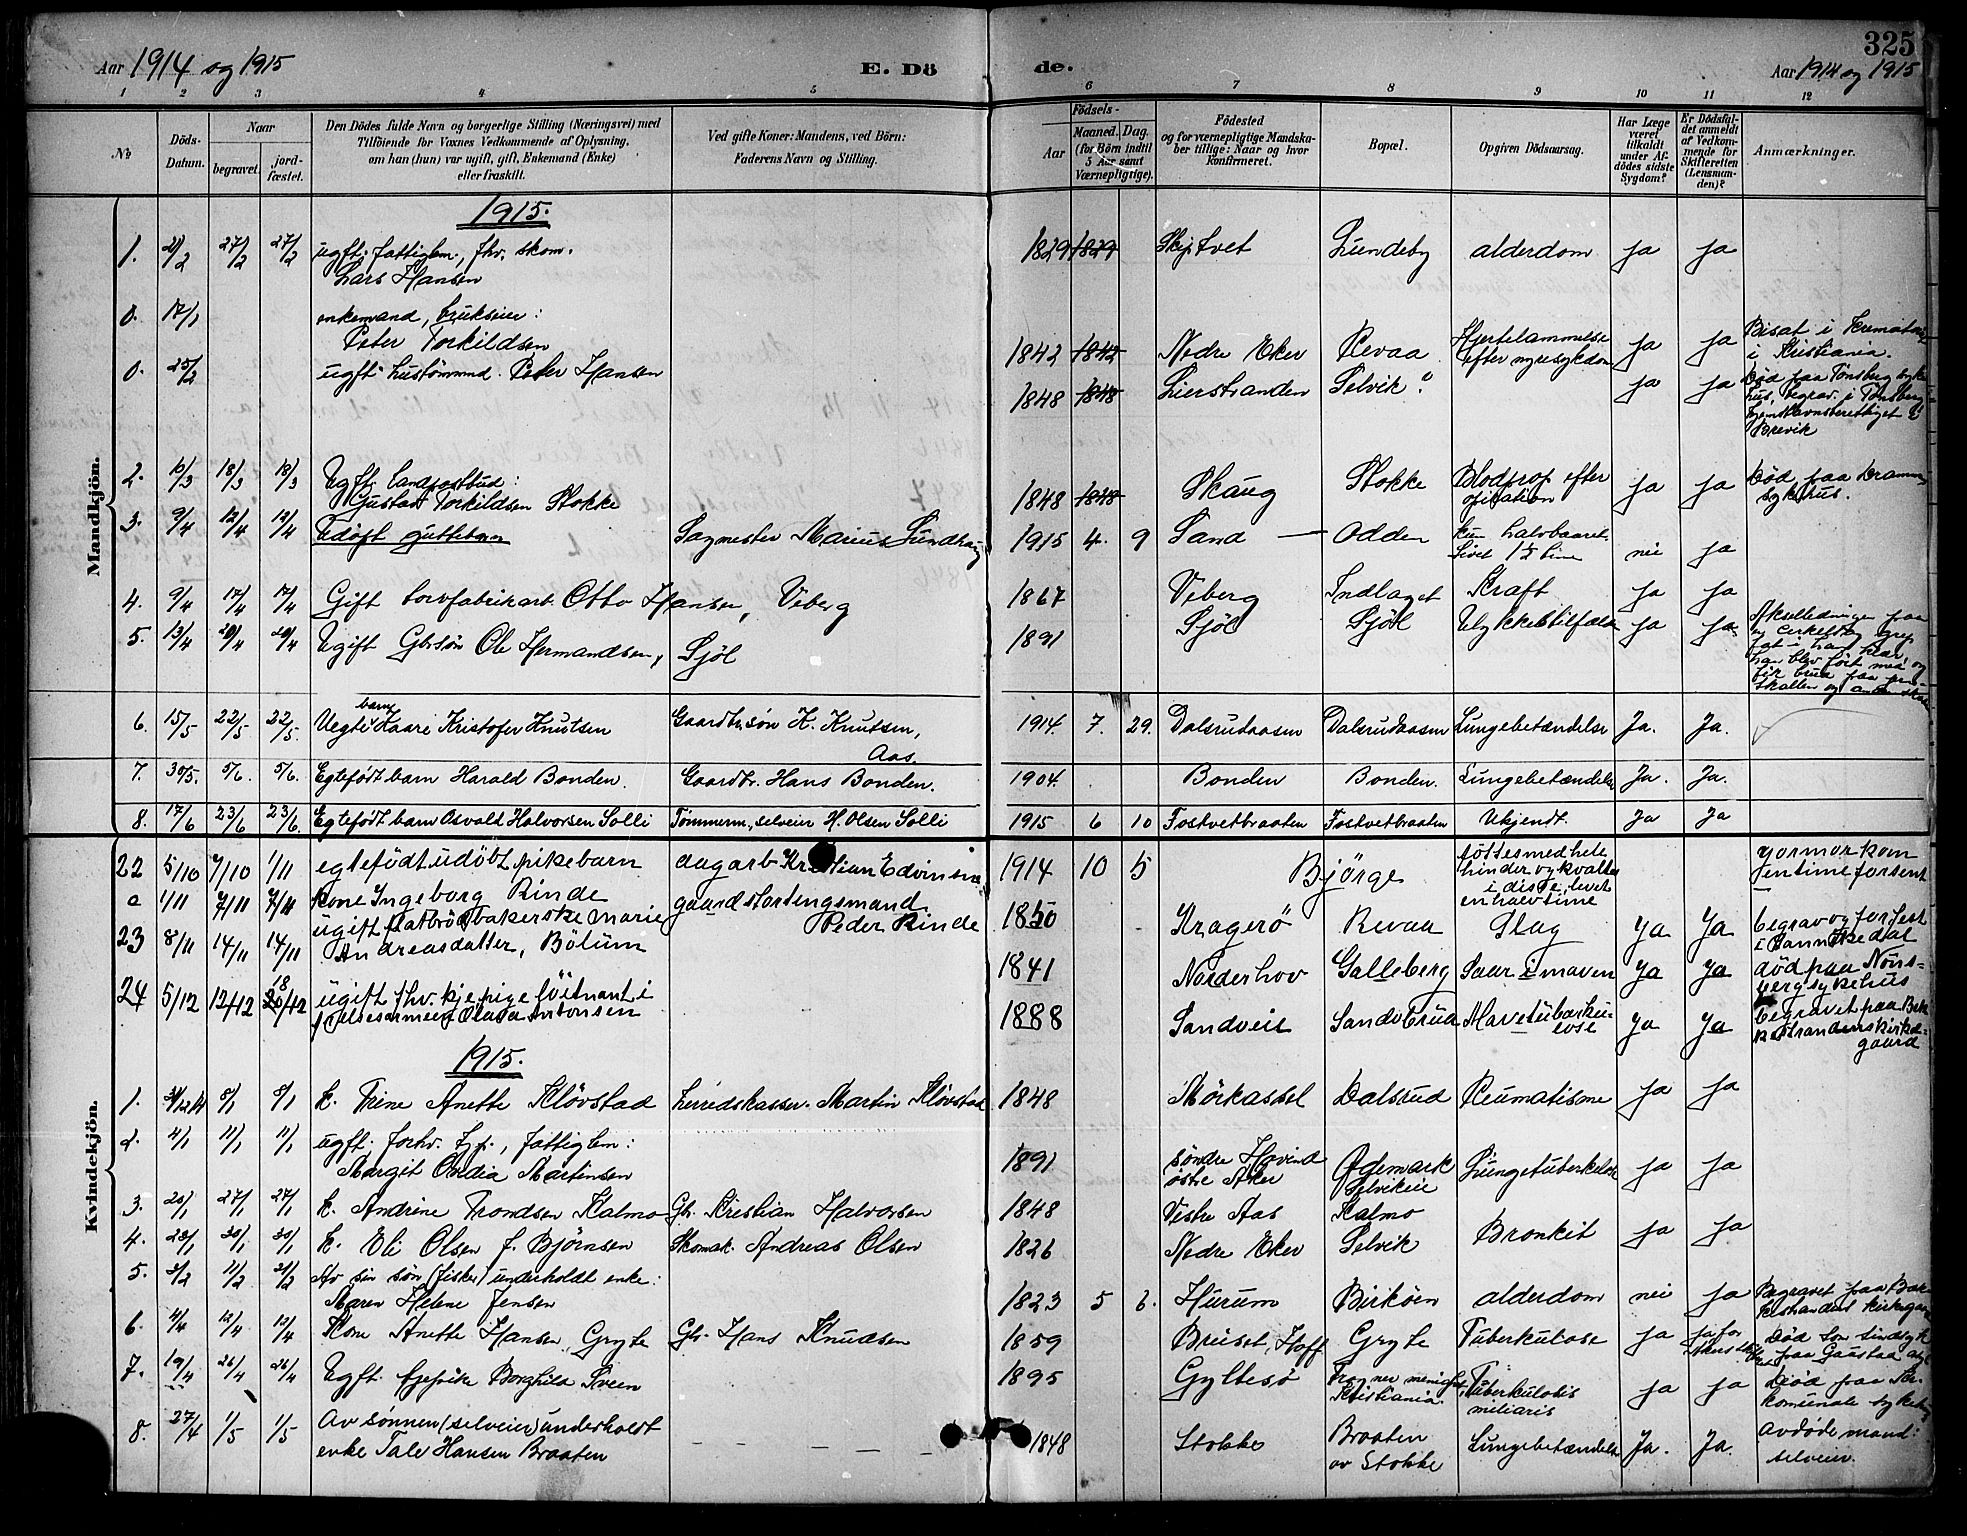 325
Aar 1914 og 1915 E. Dö de. Aar 1914 og 1915
1 2 3 4 5 6 7 8 9 10 11 12
No
Döds-Datum.
Naar
begravet.
jordfæstet.
Den Dödes fulde Navn og borgerlige Stilling (Næringsvei) med
Tilföiende for Voxnes Vedkommende af Oplysning,
om han (hun) var ugift, gift, Enkemand (Enke)
eller fraskilt.
Ved gifte Koner: Mandens, ved Börn:
Faderens Navn og Stilling.
Födsels-
Aar
Maaned. Dag.
(for Börn indtil
5 Aar samt
Værnepligtige).
Födested
og for værnepligtige Mandskaber tillige: Naar og hvor
Konfirmeret.
Bopæl.
Opgiven Dödsaarsag.
Har Læge
været
tilkaldt
under Afdödes sidste
Sygdom?
Er Dödsfaldet anmeldt
af Vedkommende for
Skifteretten
(Lensmanden)?
Anmærkninger.
Mandkjön.
1915.
1. 21/2 27/2 27/2 ugft. fattiglem., fhv. skom. 1829 1829 Skiptvet Lundeby alderdom ja ja
Lars Hansen
0. 17/1 enkemand, brukseier:
Peter Torkildsen 1842 1842 Nedre Eker Revaa Hjertelammelse efter nyresykdom ja ja Bisat i Krematoriet i Kristiania.
0. 25/2 ugft. hustömmend. Peter Hansen 1848 1848 Lierstranden Selvik? ja ja Död paa Tönsberg sykehus, begrav. i Tönsberg hjemstavnsberettiget i Brevik
2. 10/3 18/3 18/3 Ugft. landpostbud:
Gustav Torkildsen Stokke 1848 1848 Skaug Stokke Blodprop efter operation ja ja Död paa Drammens sykehus.
3. 9/4 12/4 12/4 Udöpt guttebarn Sagmester Marius Sundhaug 1915 4. 9 Sand — Odden kun halvbaaret. Livet 1½ time nei ja
4. 9/4 17/4 17/4 Gift torvfabrikarb. Otto Hansen, Veberg 1867 Veberg Indlaget Kraft ja ja
5. 13/4 20/4 20/4 Ugift Gbrsön Ole Hermandsen, Sjöl 1891 Sjöl Sjöl Ulykkestilfælde ja ja Akselledningen paa en cirkelsag grep fat i han klær, han blev fört med og fik brud paa hjerneskallen og anden skade
6. 15/5 22/5 22/5. Uegte barn Kaare Kristofer Knutsen Gaardbr.sön K. Knutsen, Aas. 1914. 7. 29. Dalsrudaasen Dalsrudaasen Lungebetændelse Ja. Ja.
7. 30/5. 5/6. 5/6. Egtefödt barn Harald Bonden. Gaardbr. Hans Bonden. 1904. Bonden Bonden. Lungebetændelse Ja. Ja.
8. 17/6 23/6 23/6. Egtefödt barn Osvald Halvorsen Solli Tömmerm., selveier H. Olsen Solli 1915 6 10 Fostvetbraaten Fostvetbraaten Ukjendt. Ja Ja
Kvindekjön.
22 5/10 7/10 1/11 egtefödt udöbt pikebarn dagarb Kristian Edvinsen 1914 10 5 Bjørge föttes med hele hinder og kvaltes i disse, levet en halv time jormor kom en time for sent
a 1/11 7/11 7/11 kone Ingeborg Rinde gaard stortingsmand Peder Rinde 1850 Kragerö Revaa Slag Ja Ja begrav og forfest i Sannikedal
23 8/11 14/11 14/11 ugift flatbröbakerske Marie Andreasdatter, Bölum 1841 Norderhov Galleberg Saar i maven Ja Ja död paa Tönsberg sykehus
24 5/12 12/12 18/12 ugift fhv. kjepige löitnant i frelsesarmeen Olava Antonsen 1888 Sandveie Sandvbrua Mavetuberkulose Ja Ja begravet paa Bækkestrandens kirkegaard
1915.
1. 31/12 14 8/1 8/1 k. Trine Anette Klövstad Herredskasser. Martin Klövstad 1848 Mörkassel Dalsrud Reumatisme Ja Ja
2. 4/1 11/1 11/1 ugft. forhv. tj.p., fattiglem:
Margit Ovidia Martinsen 1891 söndre Hovind östre Aker Ødemark Selvikeie Lungetuberkelose ja ja
3. 20/1 27/1 27/1 k. Andrine Trondsen Kalmo Gbr. Kristian Halvorsen 1848 Vestre Aas Kalmo
4. 23/1 30/1 30/1 k. Eli Olsen f. Björnsen Skomak. Andreas Olsen 1826 Nedre Eker Selvik Bronkit ja ja
5. 3/2 11/2 21/2 Av sin sön (fisker) underholdt enke:
Maren Helene Jensen 1823 5 6. Hurum Birköen alderdom nei ja Begravet paa Bækkestrandens kirkegaard
6. 4/4 12/4 12/4 Kone Anette Hansen, Gryte Gbr. Hans Knudsen 1859 Breiset, Hoff Gryte Tuberkulose ja ja for Död som sindsyk paa Gaustad asyl
7. 19/4 26/4 26/4 Ugft. tjepike Borghild Sveen 1895 Gyltesö Frogner menighet Kristiania. Tuberkulosis miliaris ja ja Död paa kommunale sykehus
8. 27/4 1/5 1/5 Av sønnen (selveier) underholdt
enke Tale Hansen Braaten — — — — 1848 Stokke Braaten av Stokke Lungebetændelse Ja. Ja. Avdøde mand: selveier.